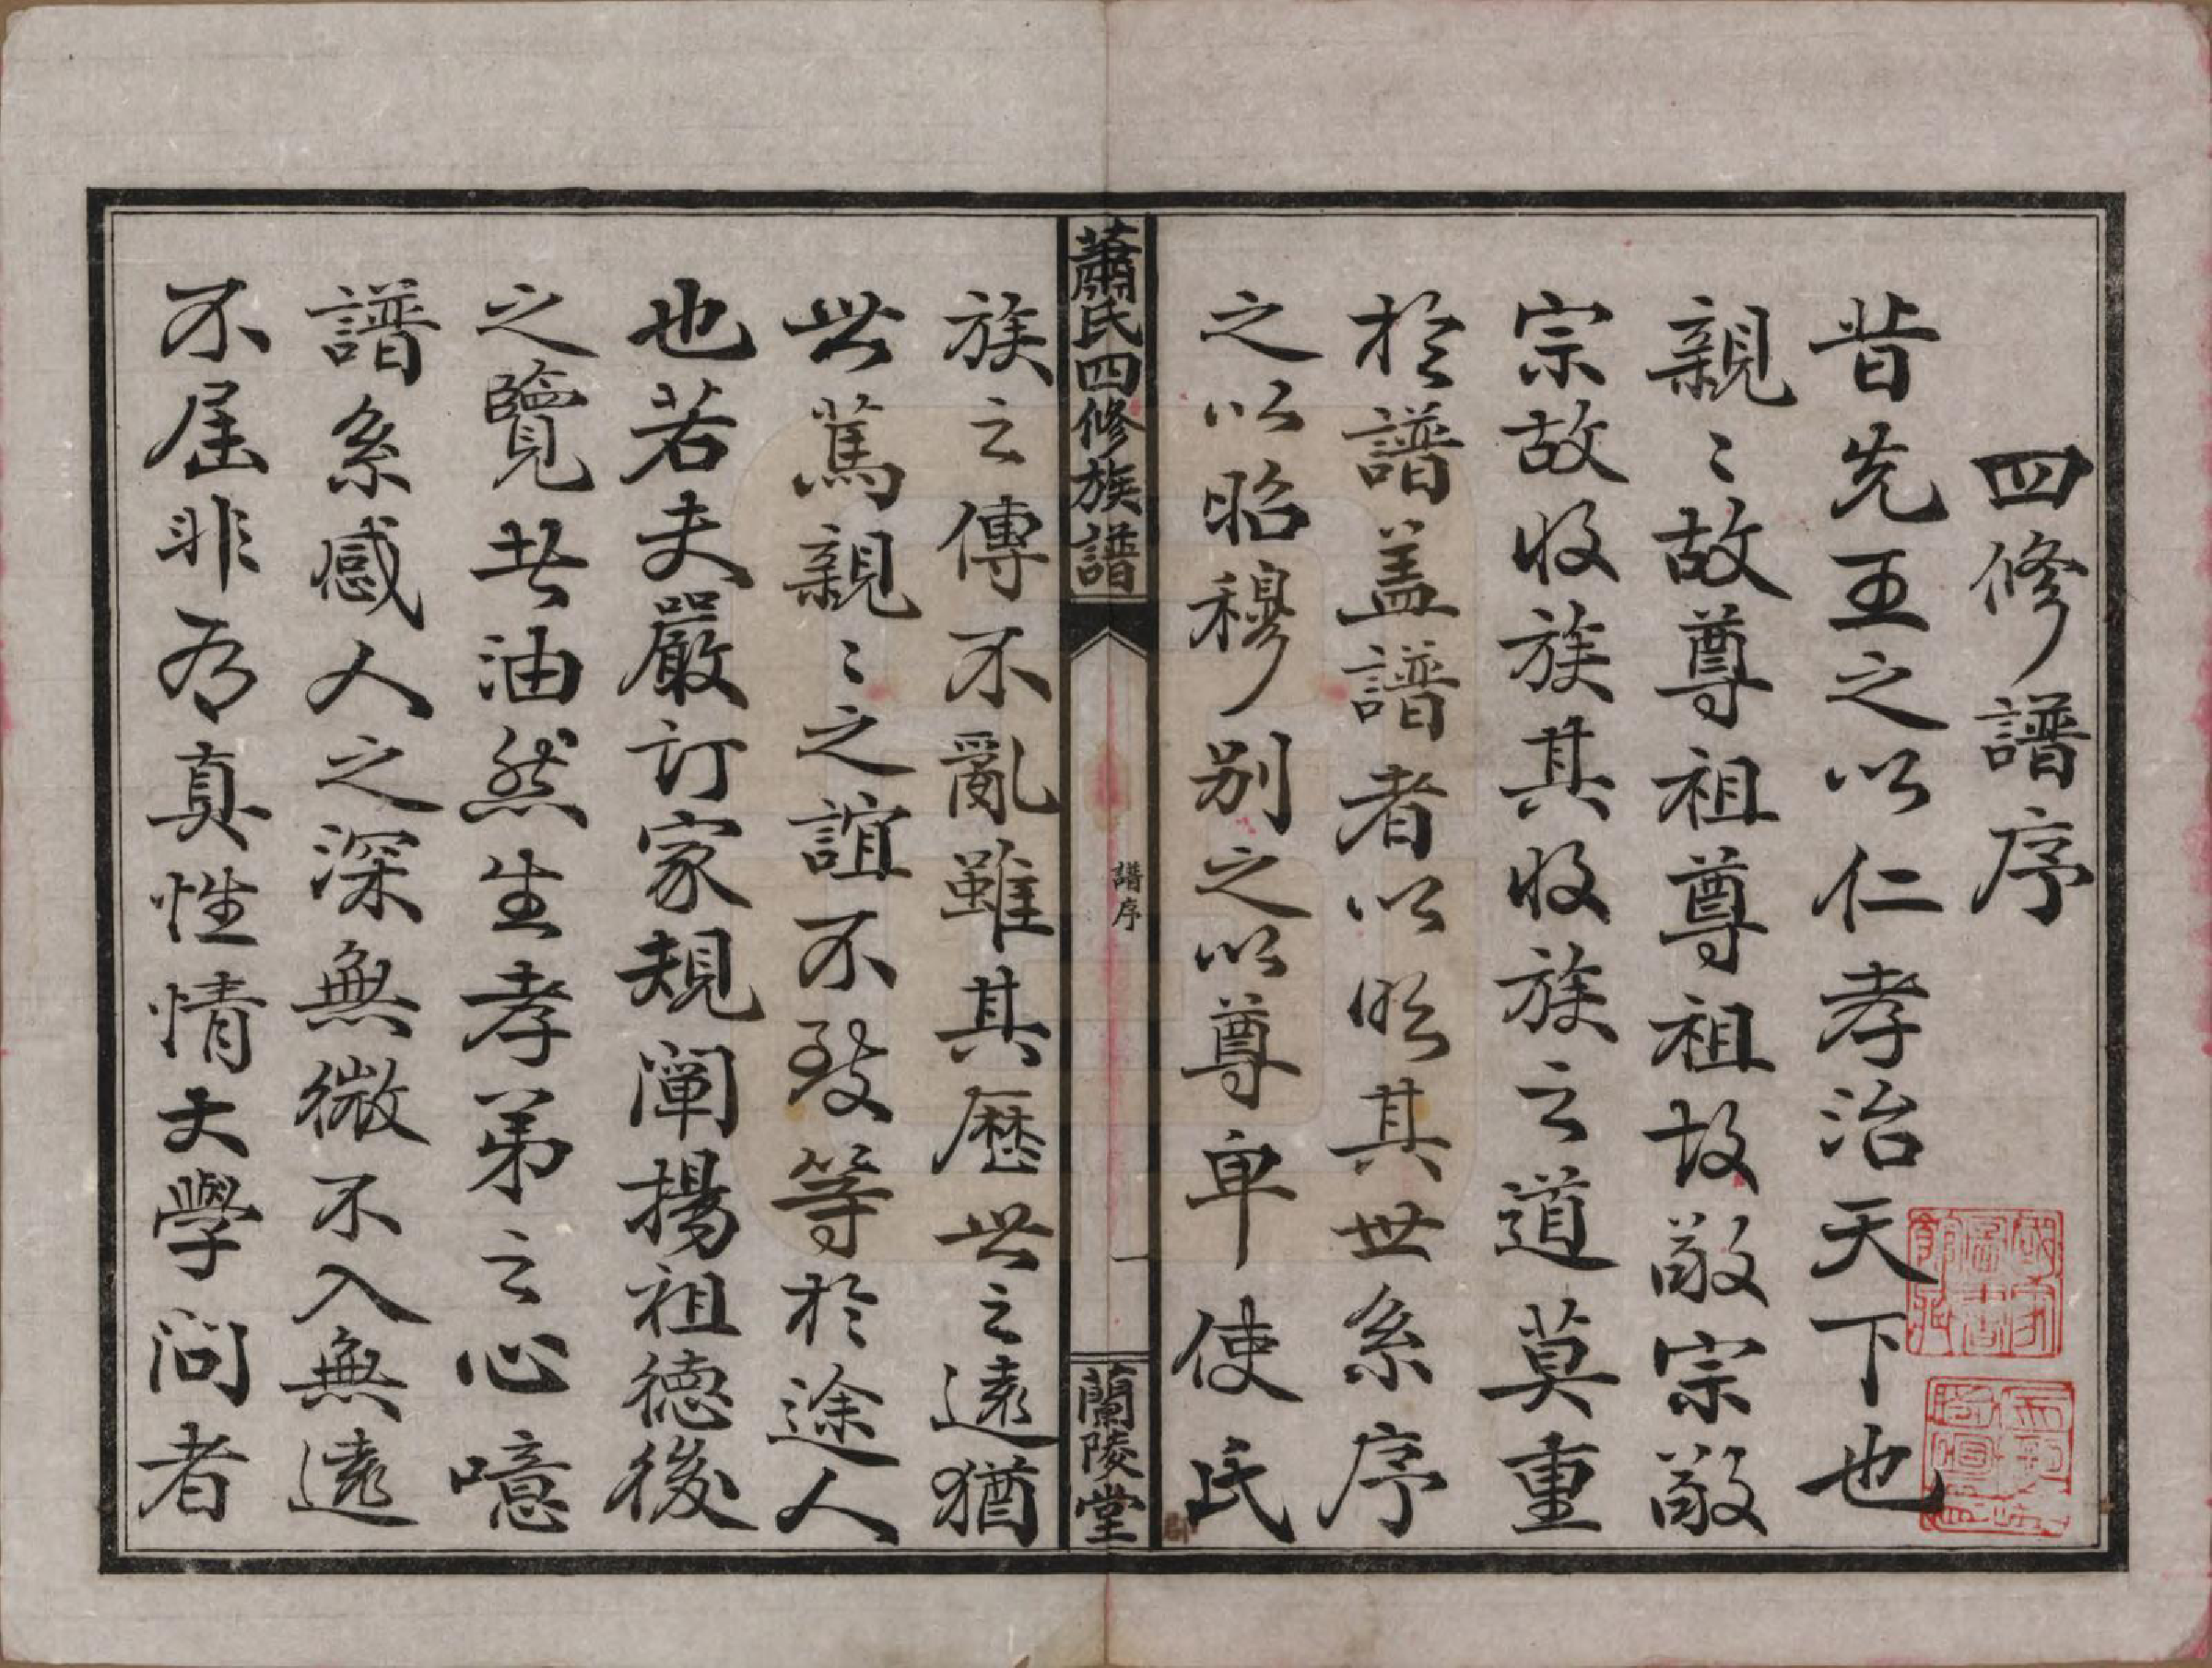 四修譜序
昔先王之以仁孝治天下也
親〻故尊祖尊祖故敬宗敬
宗故收族其收族之道莫重
於譜蓋譜者以明其世系序
之以昭穆别之以尊卑使氏
蕭氏四修族譜
譜序
一
蘭陵堂
族之傳不亂雖其歷世之遠猶
世篤親〻之誼不致等於途人
也若夫嚴訂家規闡揚祖德後
之覽者油然生孝弟之心噫
譜系感人之深無微不入無遠
不屆非有真性情大學问者
國家圖書館藏